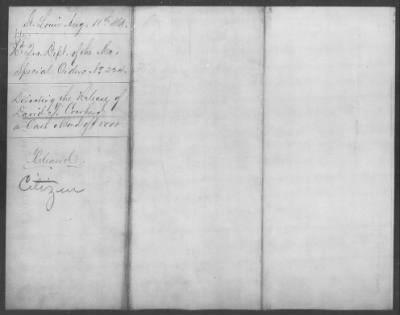 St. Louis Aug. 11th 186
Hd Qrs Dept. of the Mo.
Special Orders No. 224
Directing the Release of
David
a Bond of 1000
Released
Citizen